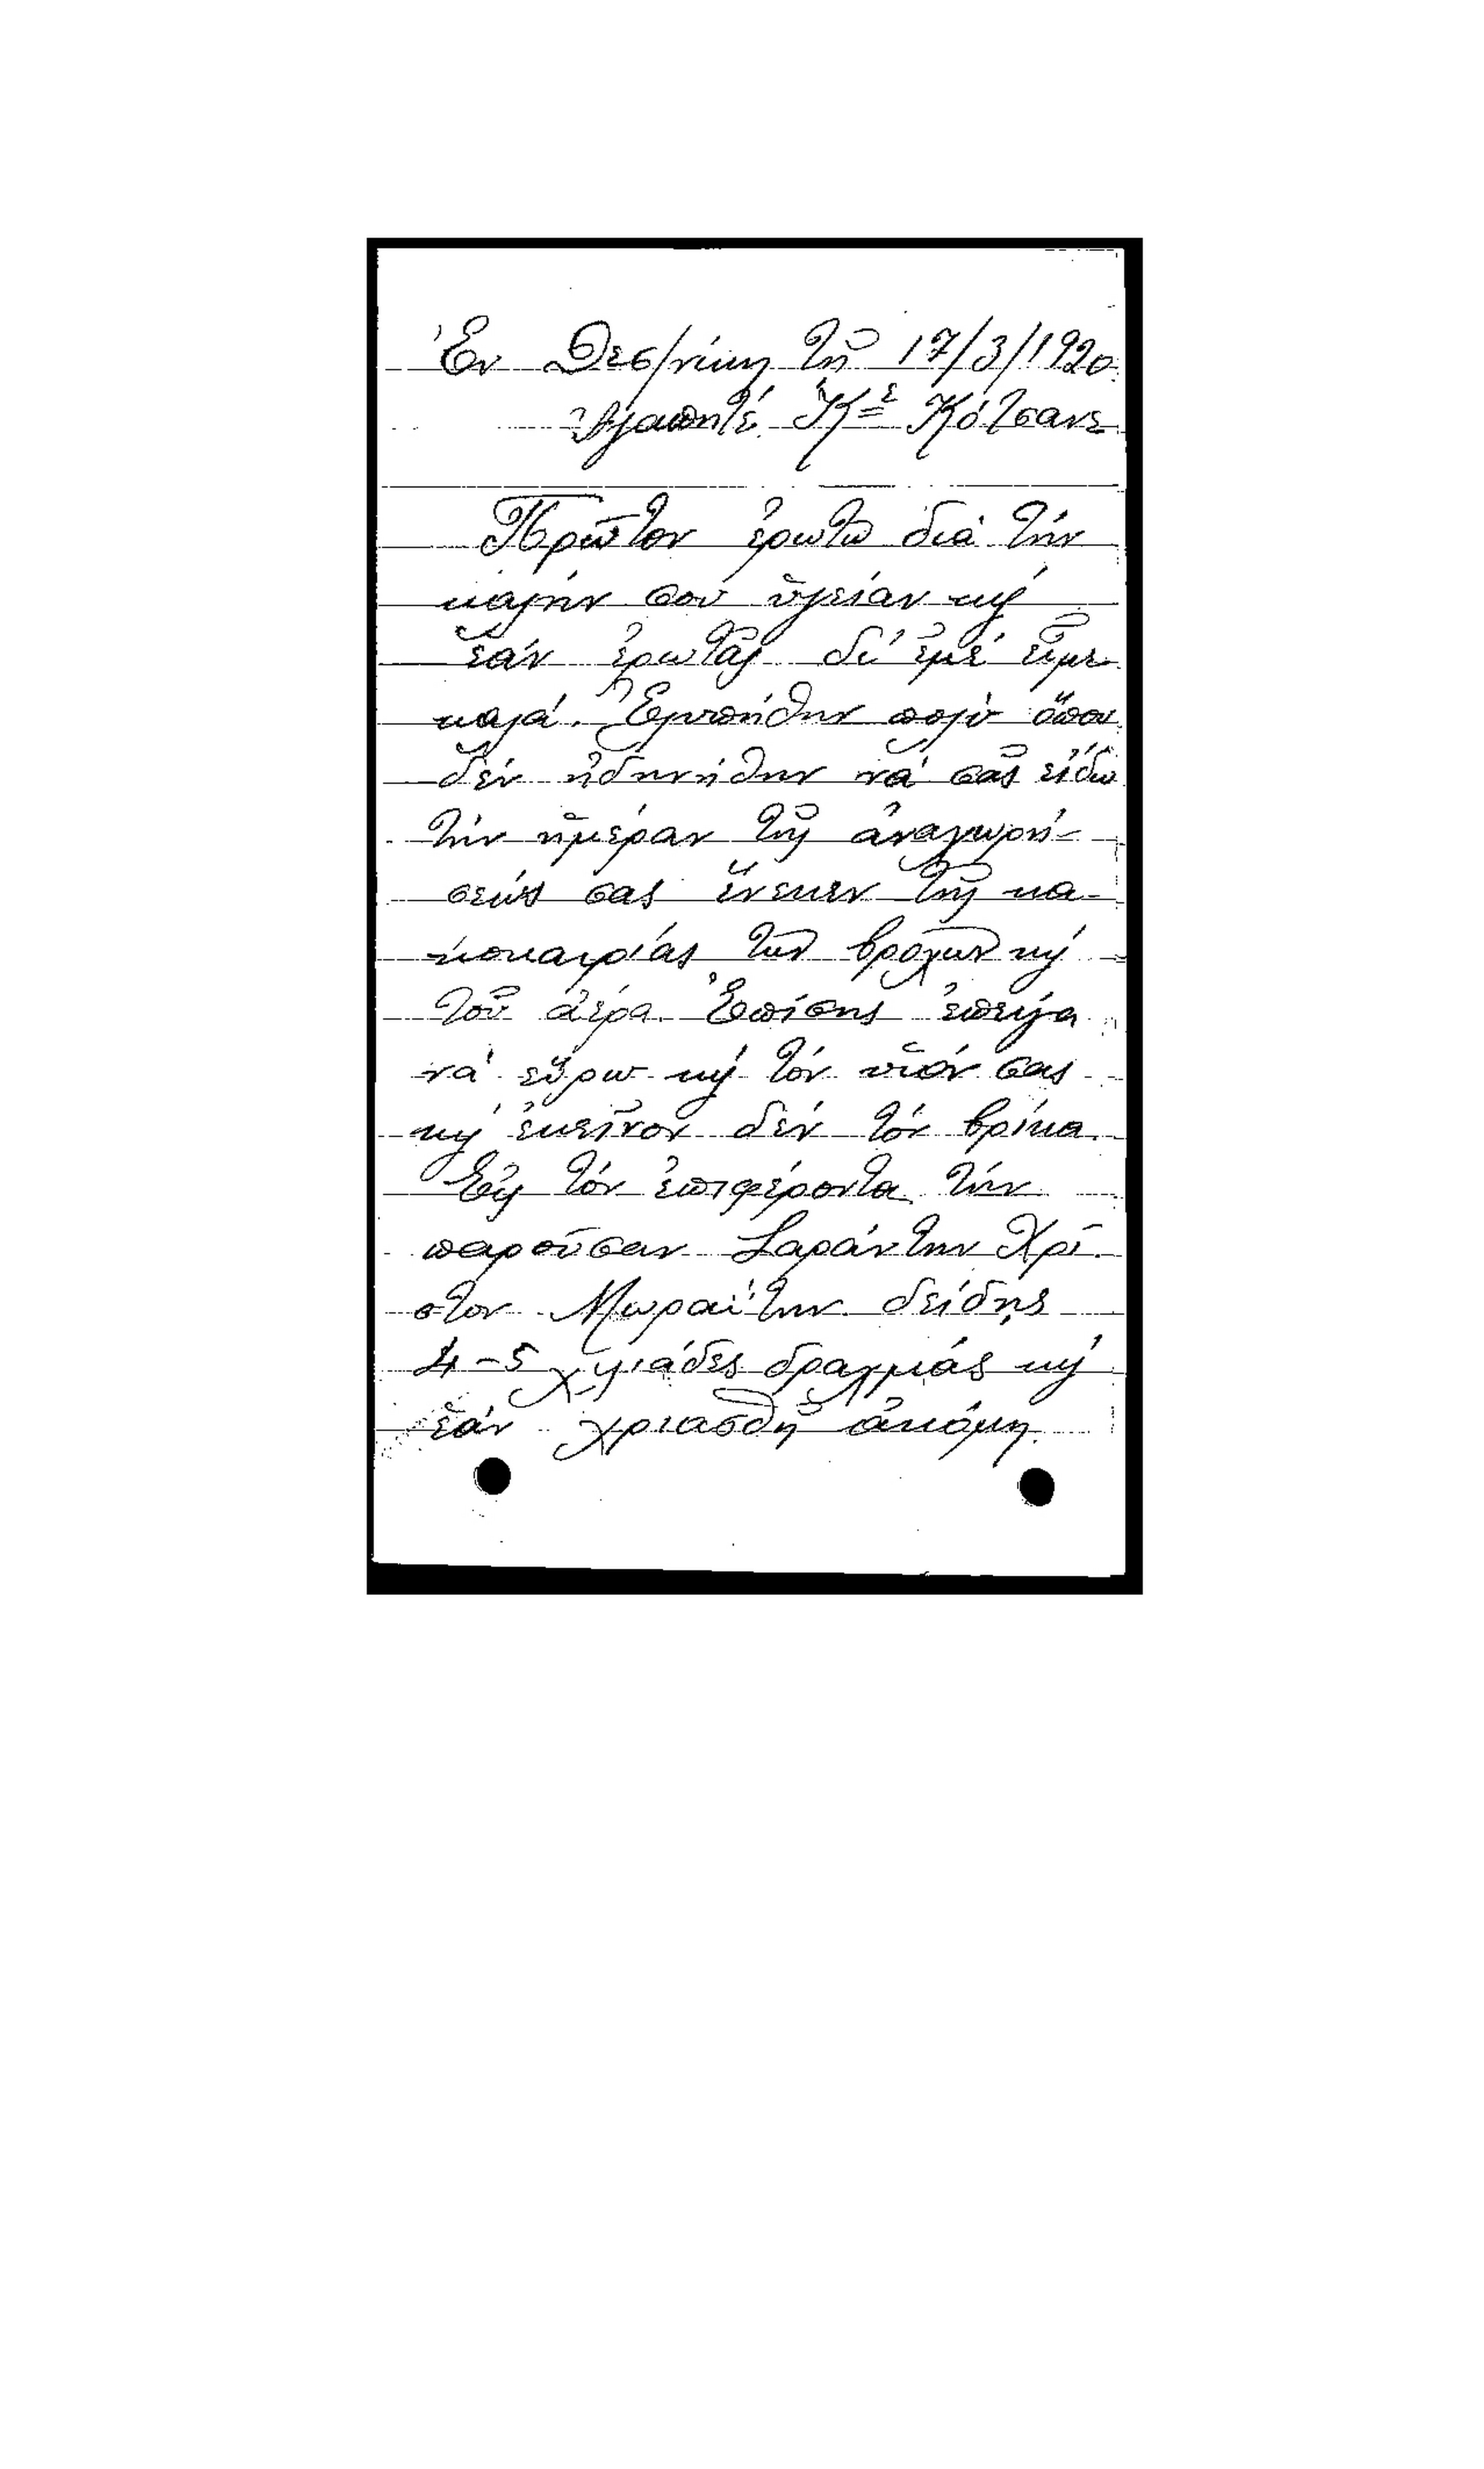 Ἐν Θεσ/νίκῃ τῇ 17/3/1920
Ἀγαπητέ Κε Κότσανε
Πρῶτον ἐρωτῶ διά τήν
καλήν σου ὑγείαν κὶ
ἐάν ἐρωτᾷς δι' ἐμέ εἶμε
καλά. Ἐλυπήθην πολύ ὅπου
δέν ἠδηνήθην νά σᾶς εἰδῶ
τήν ἡμέραν τῆς ἀναχωρή-
σεώς σας ἕνεκεν τῆς κα-
κοκαιρίας τῶν βροχῶν κὶ
τοῦ ἀέρα. Ἐπίσης ἐπειγα
νά εὕρω κὶ τόν υἱόν σας
κὶ ἐκεῖνον δέν τόν βρίκα.
Εἰς τόν ἐπιφέροντα τήν
παροῦσαν Σαράντην Χρί-
στον Μωραΐτην δείδῃς
4-5 χιλιάδες δραχμάς κὶ
ἐάν χριασθῇ ἀκόμη.